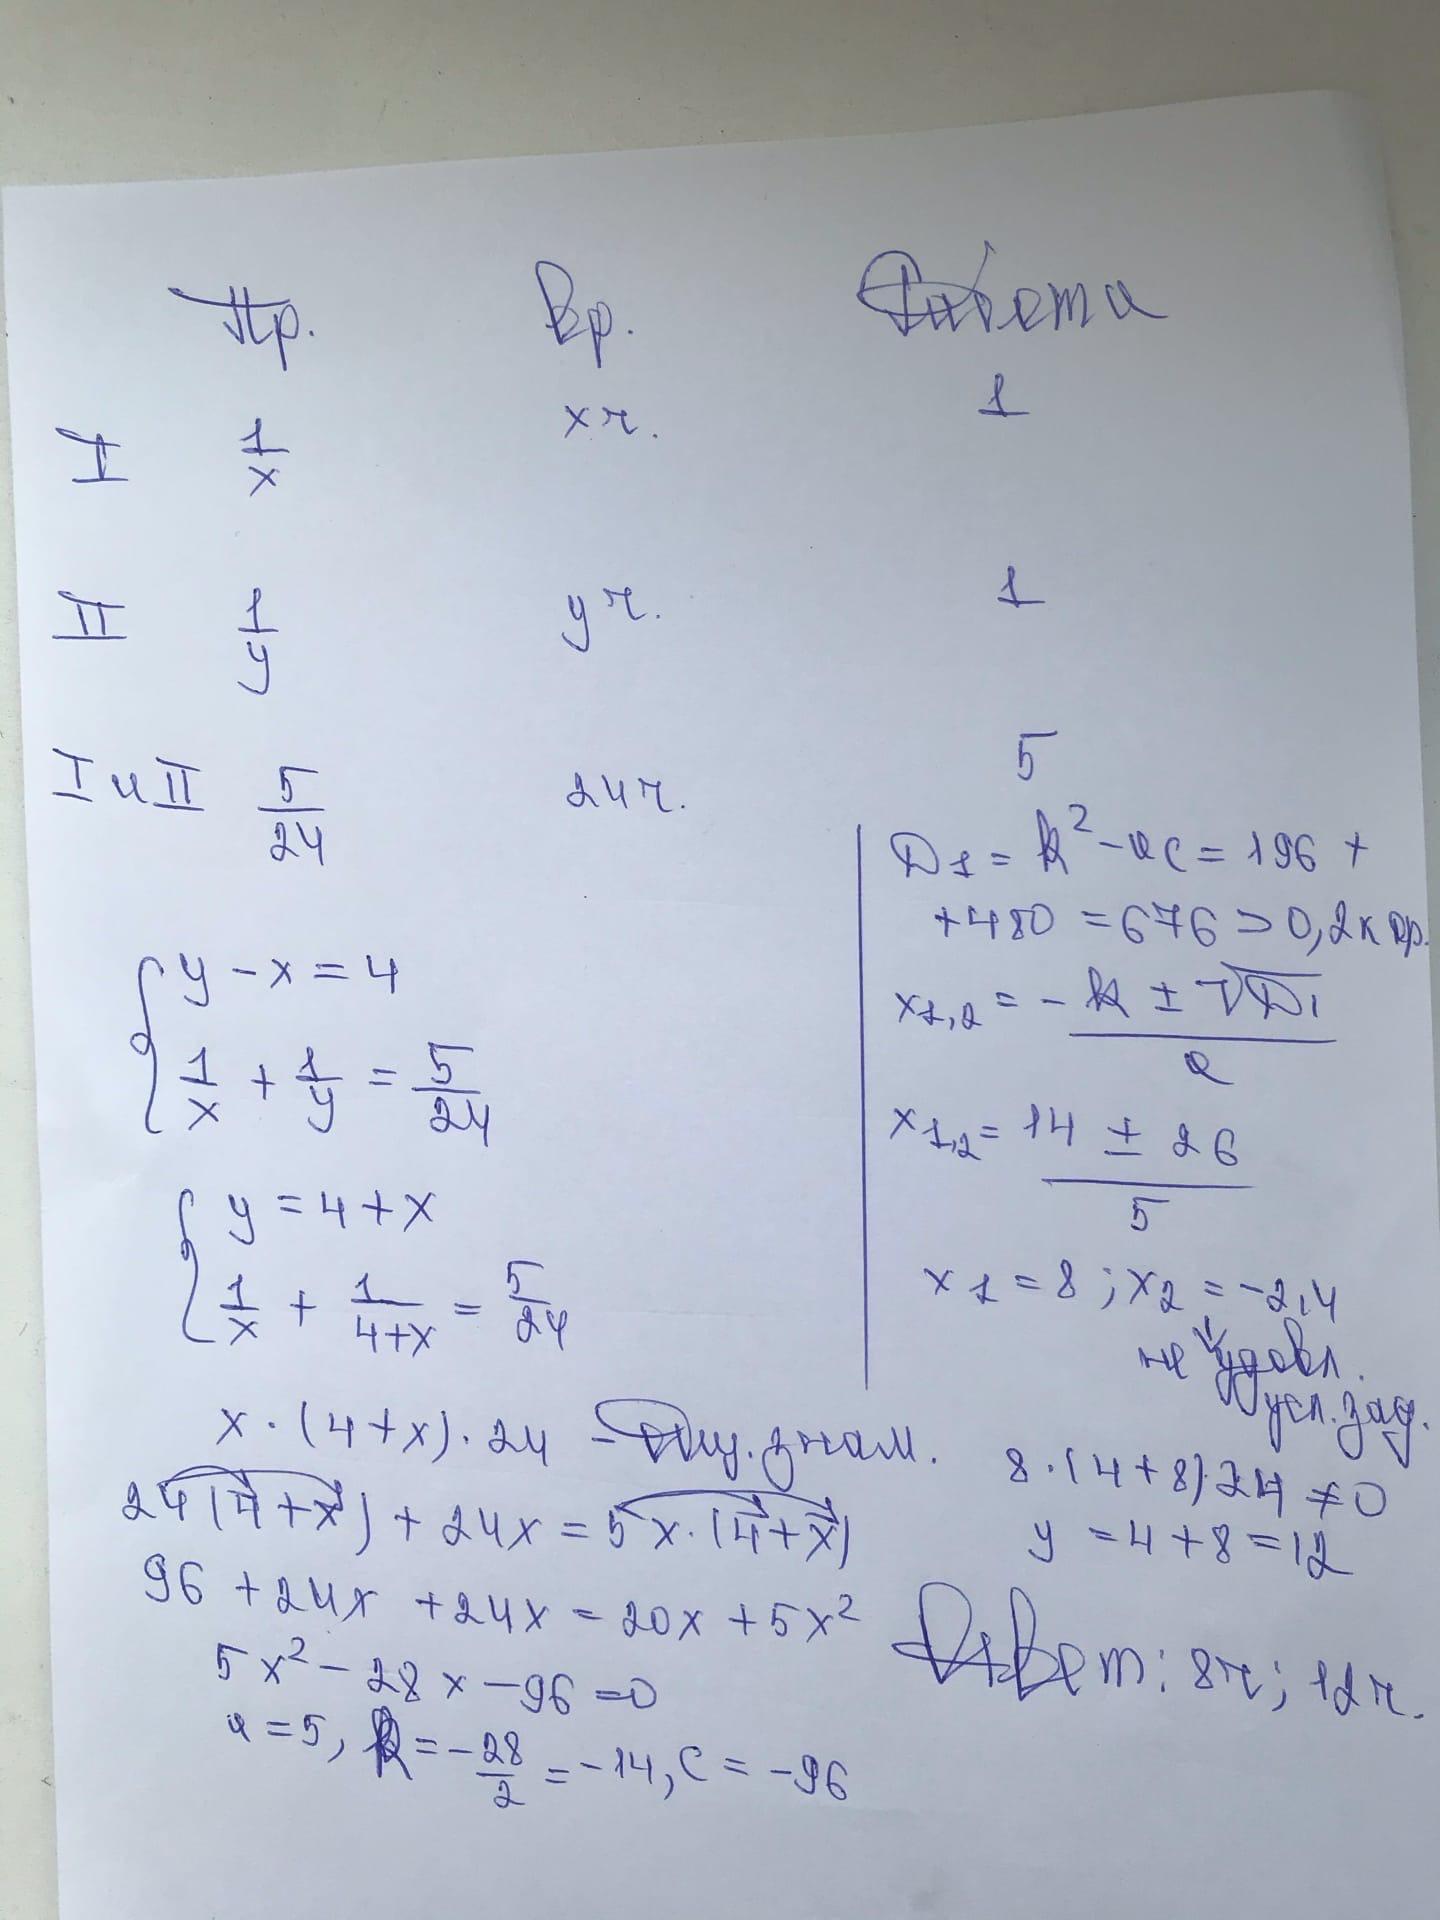 Пр. Вр. Работа
I 1/x x ч. 1
II 1/y y ч. 1
I и II 5/24 24 ч. 5
{ y - x = 4
1/x + 1/y = 5/24
{ y = 4 + x
1/x + 1/(4+x) = 5/24
x · (4 + x) · 24 - общ. знам.
24(4+x) + 24x = 5x · (4+x)
96 + 24x + 24x = 20x + 5x²
5x² - 28x - 96 = 0
a = 5, k = -28/2 = -14, c = -96
D₁ = k² - ac = 196 +
+ 480 = 676 > 0, 2 к ур.
x₁,₂ = (-k ± √D₁)/a
x₁,₂ = (14 ± 26)/5
x₁ = 8 ; x₂ = -2,4
не удовл.
усл. зад.
8 · (4 + 8) · 24 ≠ 0
y = 4 + 8 = 12
Ответ: 8 ч; 12 ч.